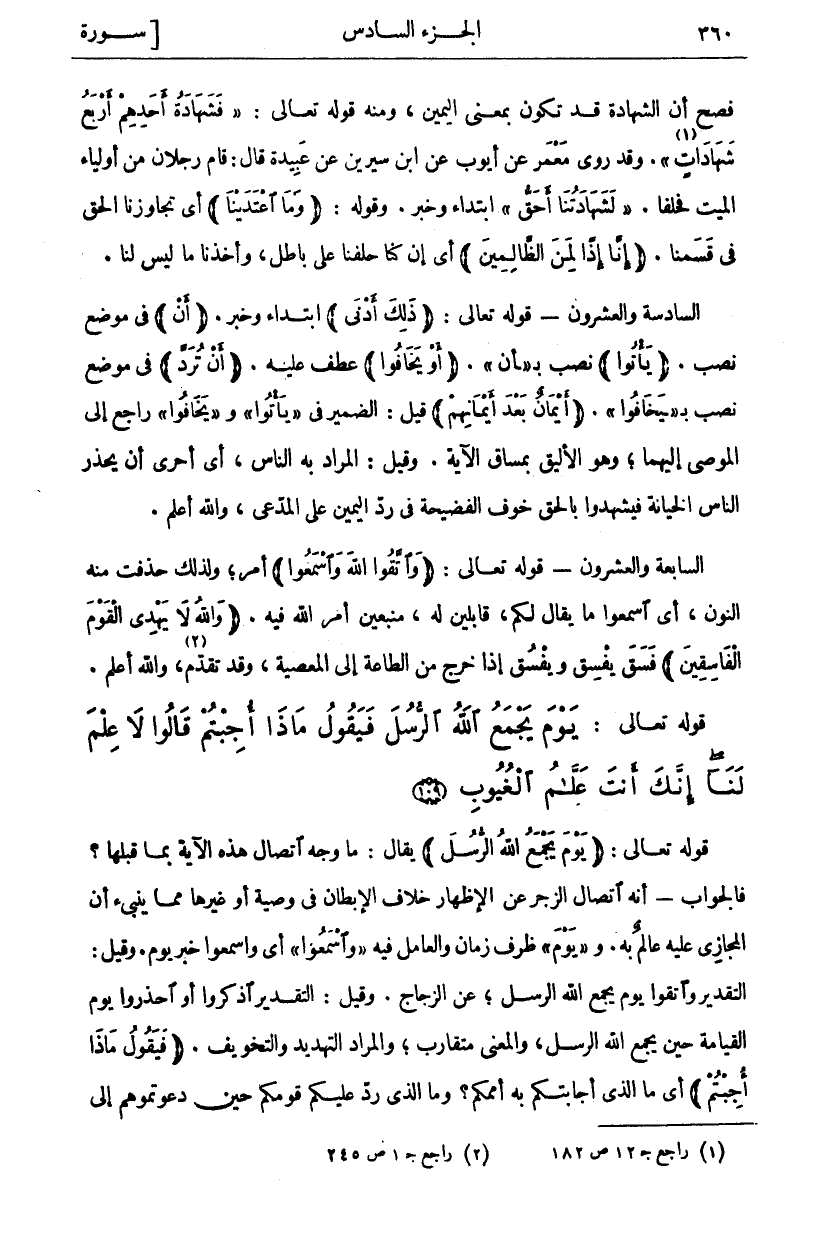 ٣٦٠ الجـزء السادس [ سـورة
فصح أن الشهادة قد تكون بمعنى اليمين ، ومنه قوله تعالى : « فَشَهَادَةُ أَحَدِهِمْ أَرْبَعُ
شَهَادَاتٍ (١) » . وقد روى مَعْمَر عن أيوب عن ابن سيرين عن عَبِيدة قال : قام رجلان من أولياء
الميت فحلفا . « لَشَهَادَتُنَا أَحَقُّ » ابتداء وخبر . وقوله : ﴿ وَمَا ٱعْتَدَيْنَا ﴾ أى تجاوزنا الحق
فى قَسَمنا . ﴿ إِنَّا إِذًا لَمِنَ الظَّالِمِينَ ﴾ أى إن كنا حلفنا على باطل ، وأخذنا ما ليس لنا .
السادسة والعشرون – قوله تعالى : ﴿ ذَلِكَ أَدْنَى ﴾ ابتداء وخبر . ﴿ أَنْ ﴾ فى موضع
نصب . ﴿ يَأْتُوا ﴾ نصب بـ«ـأن » . ﴿ أَوْ يَخَافُوا ﴾ عطف عليه . ﴿ أَنْ تُرَدَّ ﴾ فى موضع
نصب بـ«ـيَخَافُوا » . ﴿ أَيْمَانٌ بَعْدَ أَيْمَانِهِمْ ﴾ قيل : الضمير فى « يَأْتُوا » و « يَخَافُوا » راجع إلى
الموصى إليهما ؛ وهو الأليق بمساق الآية . وقيل : المراد به الناس ، أى أحرى أن يحذر
الناس الخيانة فيشهدوا بالحق خوف الفضيحة فى ردّ اليمين على المدّعى ، والله أعلم .
السابعة والعشرون – قوله تعالى : ﴿ وَٱتَّقُوا اللهَ وَٱسْمَعُوا ﴾ أمر ؛ ولذلك حذفت منه
النون ، أى ٱسمعوا ما يقال لكم ، قابلين له ، متبعين أمر الله فيه . ﴿ وَاللهُ لَا يَهْدِى الْقَوْمَ
الْفَاسِقِينَ ﴾ فَسَقَ يفْسِق ويفْسُق إذا خرج من الطاعة إلى المعصية ، وقد تقدّم (٢) ، والله أعلم .
قوله تعالى : يَوْمَ يَجْمَعُ ٱللَّهُ ٱلرُّسُلَ فَيَقُولُ مَاذَا أُجِبْتُمْ قَالُوا لَا عِلْمَ
لَنَآ ۖ إِنَّكَ أَنتَ عَلَّٰمُ ٱلْغُيُوبِ ١٠٩
قوله تعالى : ﴿ يَوْمَ يَجْمَعُ اللهُ الرُّسُلَ ﴾ يقال : ما وجه ٱتصال هذه الآية بما قبلها ؟
فالجواب – أنه ٱتصال الزجر عن الإظهار خلاف الإبطان فى وصية أو غيرها مما ينبىء أن
المجازى عليه عالمٌ به . و « يَوْمَ » ظرف زمان والعامل فيه « وٱسْمَعُوا » أى واسمعوا خبر يوم . وقيل :
التقدير وٱتقوا يوم يجمع الله الرسل ؛ عن الزجاج . وقيل : التقدير ٱذكروا أو ٱحذروا يوم
القيامة حين يجمع الله الرسل ، والمعنى متقارب ؛ والمراد التهديد والتخويف . ﴿ فَيَقُولُ مَاذَا
أُجِبْتُمْ ﴾ أى ما الذى أجابتكم به أممكم ؟ وما الذى ردّ عليكم قومكم حين دعوتموهم إلى
(١) راجع جـ ١٢ ص ١٨٢ (٢) راجع جـ ١ ص ٢٤٥